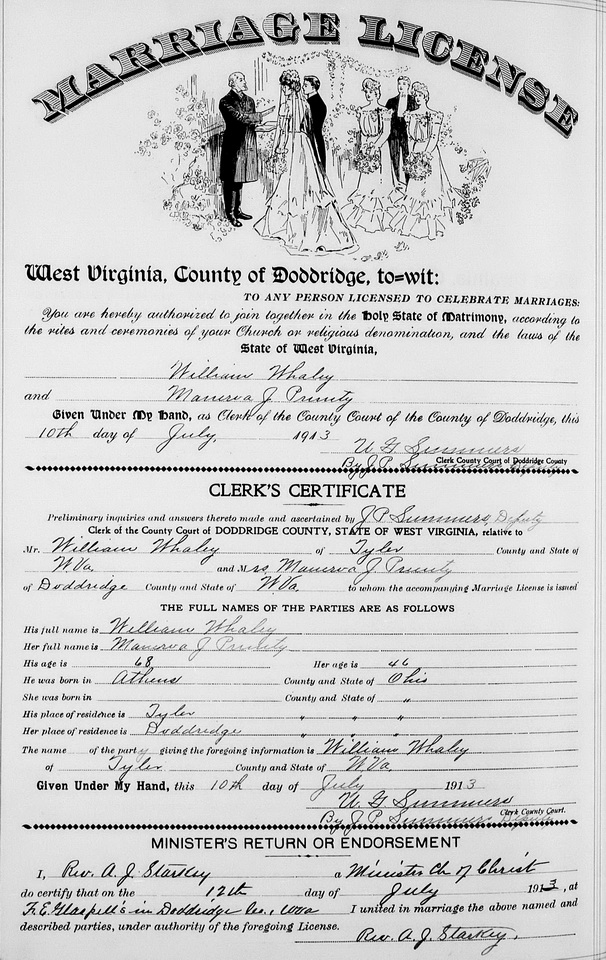 MARRIAGE LICENSE
West Virginia, County of Doddridge, to=wit:
TO ANY PERSON LICENSED TO CELEBRATE MARRIAGES:
You are hereby authorized to join together in the Holy State of Matrimony, according to
the rites and ceremonies of your Church or religious denomination, and the laws of the
State of West Virginia,
William Whaley
and Manerva J Prunty
Given Under My Hand, as Clerk of the County Court of the County of Doddridge, this
10th day of July, 1913
U G Summers
Clerk County Court of Doddridge County
By J. P. Summers Deputy
CLERK'S CERTIFICATE
Preliminary inquiries and answers thereto made and ascertained by J P Summers, Deputy
Clerk of the County Court of DODDRIDGE COUNTY, STATE OF WEST VIRGINIA, relative to
Mr. William Whaley of Tyler County and State of
W.Va. and Mrs Manerva J Prunty
of Doddridge County and State of W.Va. to whom the accompanying Marriage License is issued
THE FULL NAMES OF THE PARTIES ARE AS FOLLOWS
His full name is William Whaley
Her full name is Manerva J Prunty
His age is 68 Her age is 46
He was born in Athens County and State of Ohio
She was born in County and State of "
His place of residence is Tyler " " "
Her place of residence is Doddridge " " "
The name of the party giving the foregoing information is William Whaley
of Tyler County and State of W.Va
Given Under My Hand, this 10th day of July 1913
U. G Summers
Clerk County Court.
By J. P. Summers Deputy
MINISTER'S RETURN OR ENDORSEMENT
I, Rev. A. J. Starkey a Minister Ch of Christ
do certify that on the 12th day of July 1913, at
F. E. Glaspell's in Doddridge Co., W.Va I united in marriage the above named and
described parties, under authority of the foregoing License.
Rev. A. J. Starkey,